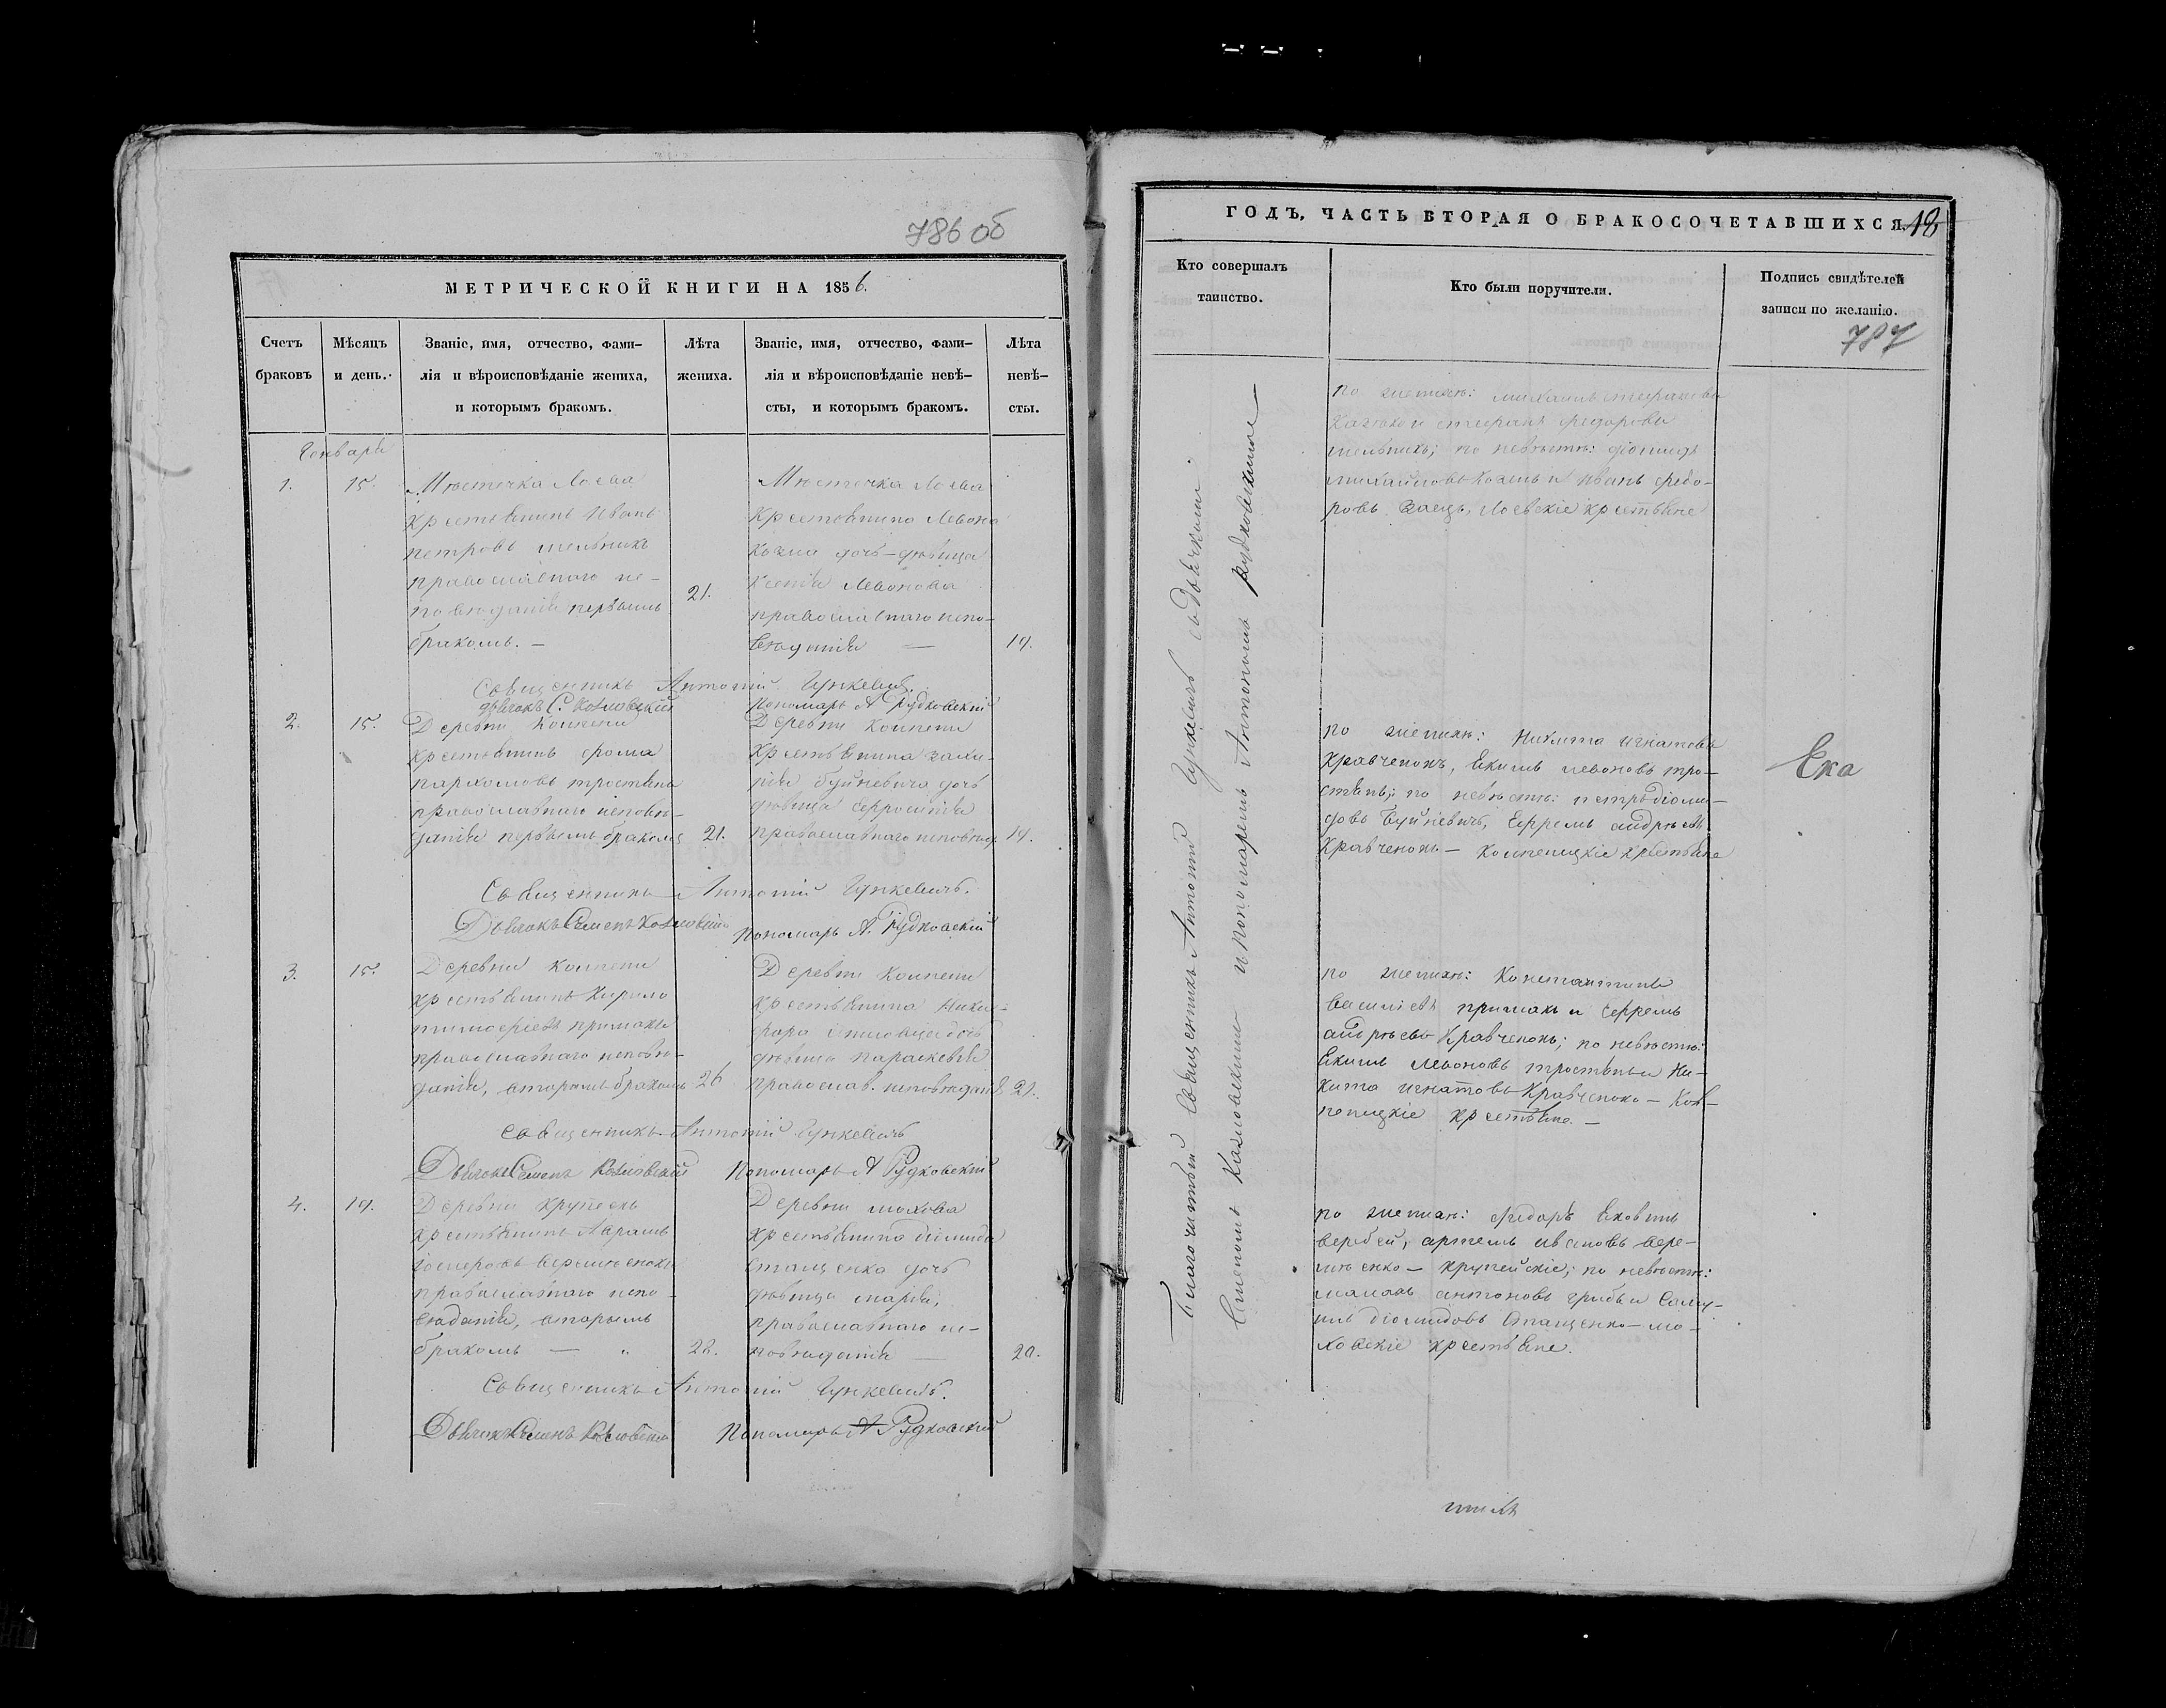 786 об
МЕТРИЧЕСКОЙ КНИГИ НА 1856.
Счетъ браковъ
Мѣсяцъ и день.
Званіе, имя, отчество, фами-
лія и вѣроисповѣданіе жениха,
и которымъ бракомъ.
Лѣта жениха.
Званіе, имя, отчество, фами-
лія и вѣроисповѣданіе невѣ-
сты, и которымъ бракомъ.
Лѣта невѣ-
сты.
Генваря
1.
15.
Мѣстечка Лоева
крестьянинъ Иванъ
петровъ мельникъ
православнаго ис-
повѣданія первымъ
бракомъ. —
21.
Мѣстечка Лоева
крестьянина Левона
дочь-дѣвица
Ксенія Левонова
православнаго испо-
вѣданія —
19.
Священникъ Антоній
дьячокъ С. Козловскій
Пономарь А Рудковскій
2.
15.
Деревни Колпени
крестьянинъ Фома
пархомовъ тростянъ
православнаго исповѣ-
данія первымъ бракомъ
21.
Деревни Колпени
крестьянина заха-
рія буйневича дочь
дѣвица Ефросинія
православнаго исповѣд.
19.
Священникъ Антоній
Дьячокъ Семенъ Козловскій
Пономарь А. Рудковскій
3.
15.
Деревни Колпени
крестьянинъ Кирило
тимофіевъ примакъ
православнаго исповѣ-
данія, вторымъ бракомъ
26
Деревни Колпени
крестьянина Ники-
фора дочь
дѣвица параскевія
православ. исповѣданія
21.
Священникъ Антоній
Дьячокъ Семенъ Козловскій
Пономарь А Рудковскій
4.
19.
Деревни крупейки
крестьянинъ Аврамъ
православнаго испо-
вѣданія, вторымъ
бракомъ — "
22.
Деревни мохова
крестьянина діомида
стащенка дочь
дѣвица марія,
православнаго ис-
повѣданія —
20.
Священникъ Антоній
Дьячокъ Семенъ Козловскій
Пономарь А Рудковскій
ГОДЪ, ЧАСТЬ ВТОРАЯ О БРАКОСОЧЕТАВШИХСЯ.
18
Кто совершалъ
таинство.
Кто были поручители.
Подпись свидѣтелей
записи по желанію.
787
Благочинный Священникъ Антоній съ Дьячкомъ
Семеномъ Козловскимъ и пономаремъ Антономъ рудковскимъ —
по женихѣ: михаилъ стефановъ
и стефанъ федоровъ
мельникъ; по невѣстѣ: діомидъ
михайловъ и иванъ федо-
ровъ Заецъ, Лоевскіе крестьяне
по женихѣ: Никита игнатовъ
кравченокъ, Екимъ левоновъ тро-
стянъ; по невѣстѣ: петръ діоми-
довъ Буйневичъ, Ефремъ андрѣевъ
Кравченокъ — Колпеницкіе крестьяне
Ека
по женихѣ: Константинъ
василіевъ примакъ и Ефремъ
андрѣевъ Кравченокъ; по невѣстѣ:
Екимъ левоновъ тростянъ и Ни-
кита игнатовъ Кравченокъ — Кол-
пеницкіе крестьяне. —
по женихѣ: Яковлевъ
веребей, артемъ ивановъ вере-
мѣенко — крупейскіе; по невѣстѣ:
антоновъ грибъ и Саму-
илъ діомидовъ Стащенко — мо-
ховскіе крестьяне.